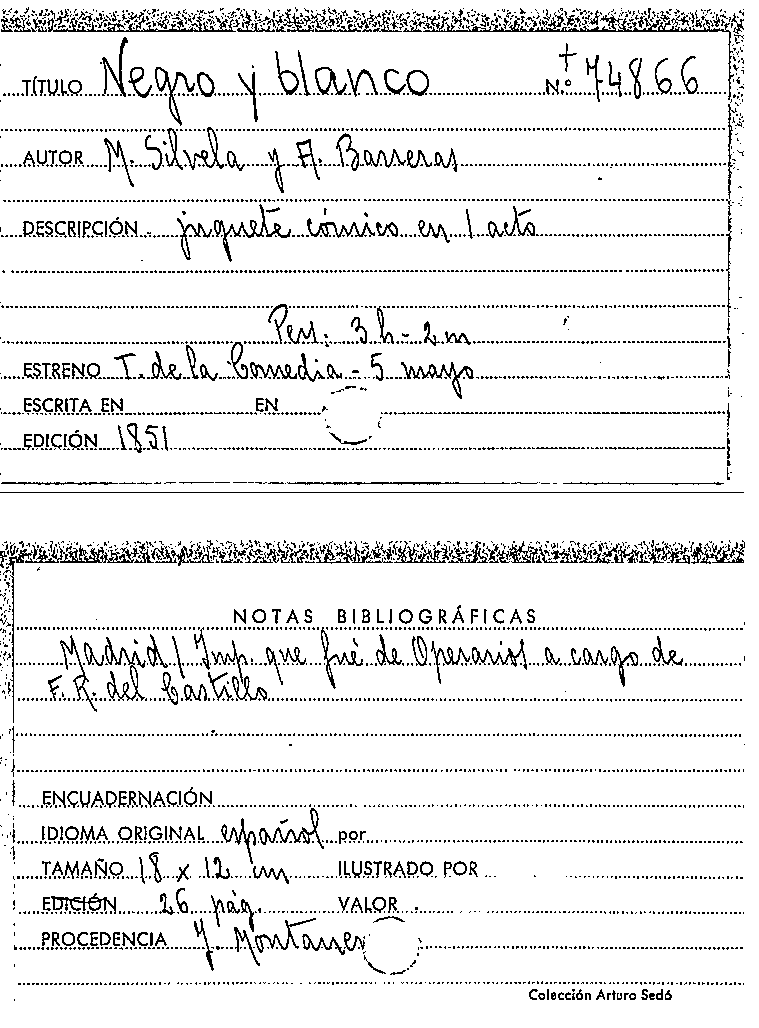 TÍTULO Negro y blanco N.º † 74866
AUTOR M. Silvela y A. Barreras
DESCRIPCIÓN juguete cómico en 1 acto
Pers: 3 h - 2 m
ESTRENO T. de la Comedia - 5 mayo
ESCRITA EN EN
EDICIÓN 1851
NOTAS BIBLIOGRÁFICAS
Madrid / Imp. que fué de Operarios a cargo de
F. R. del Castillo
ENCUADERNACIÓN
IDIOMA ORIGINAL español por
TAMAÑO 18 x 12 cm ILUSTRADO POR
EDICIÓN 26 pág. VALOR
PROCEDENCIA J. Montaner
Colección Arturo Sedó